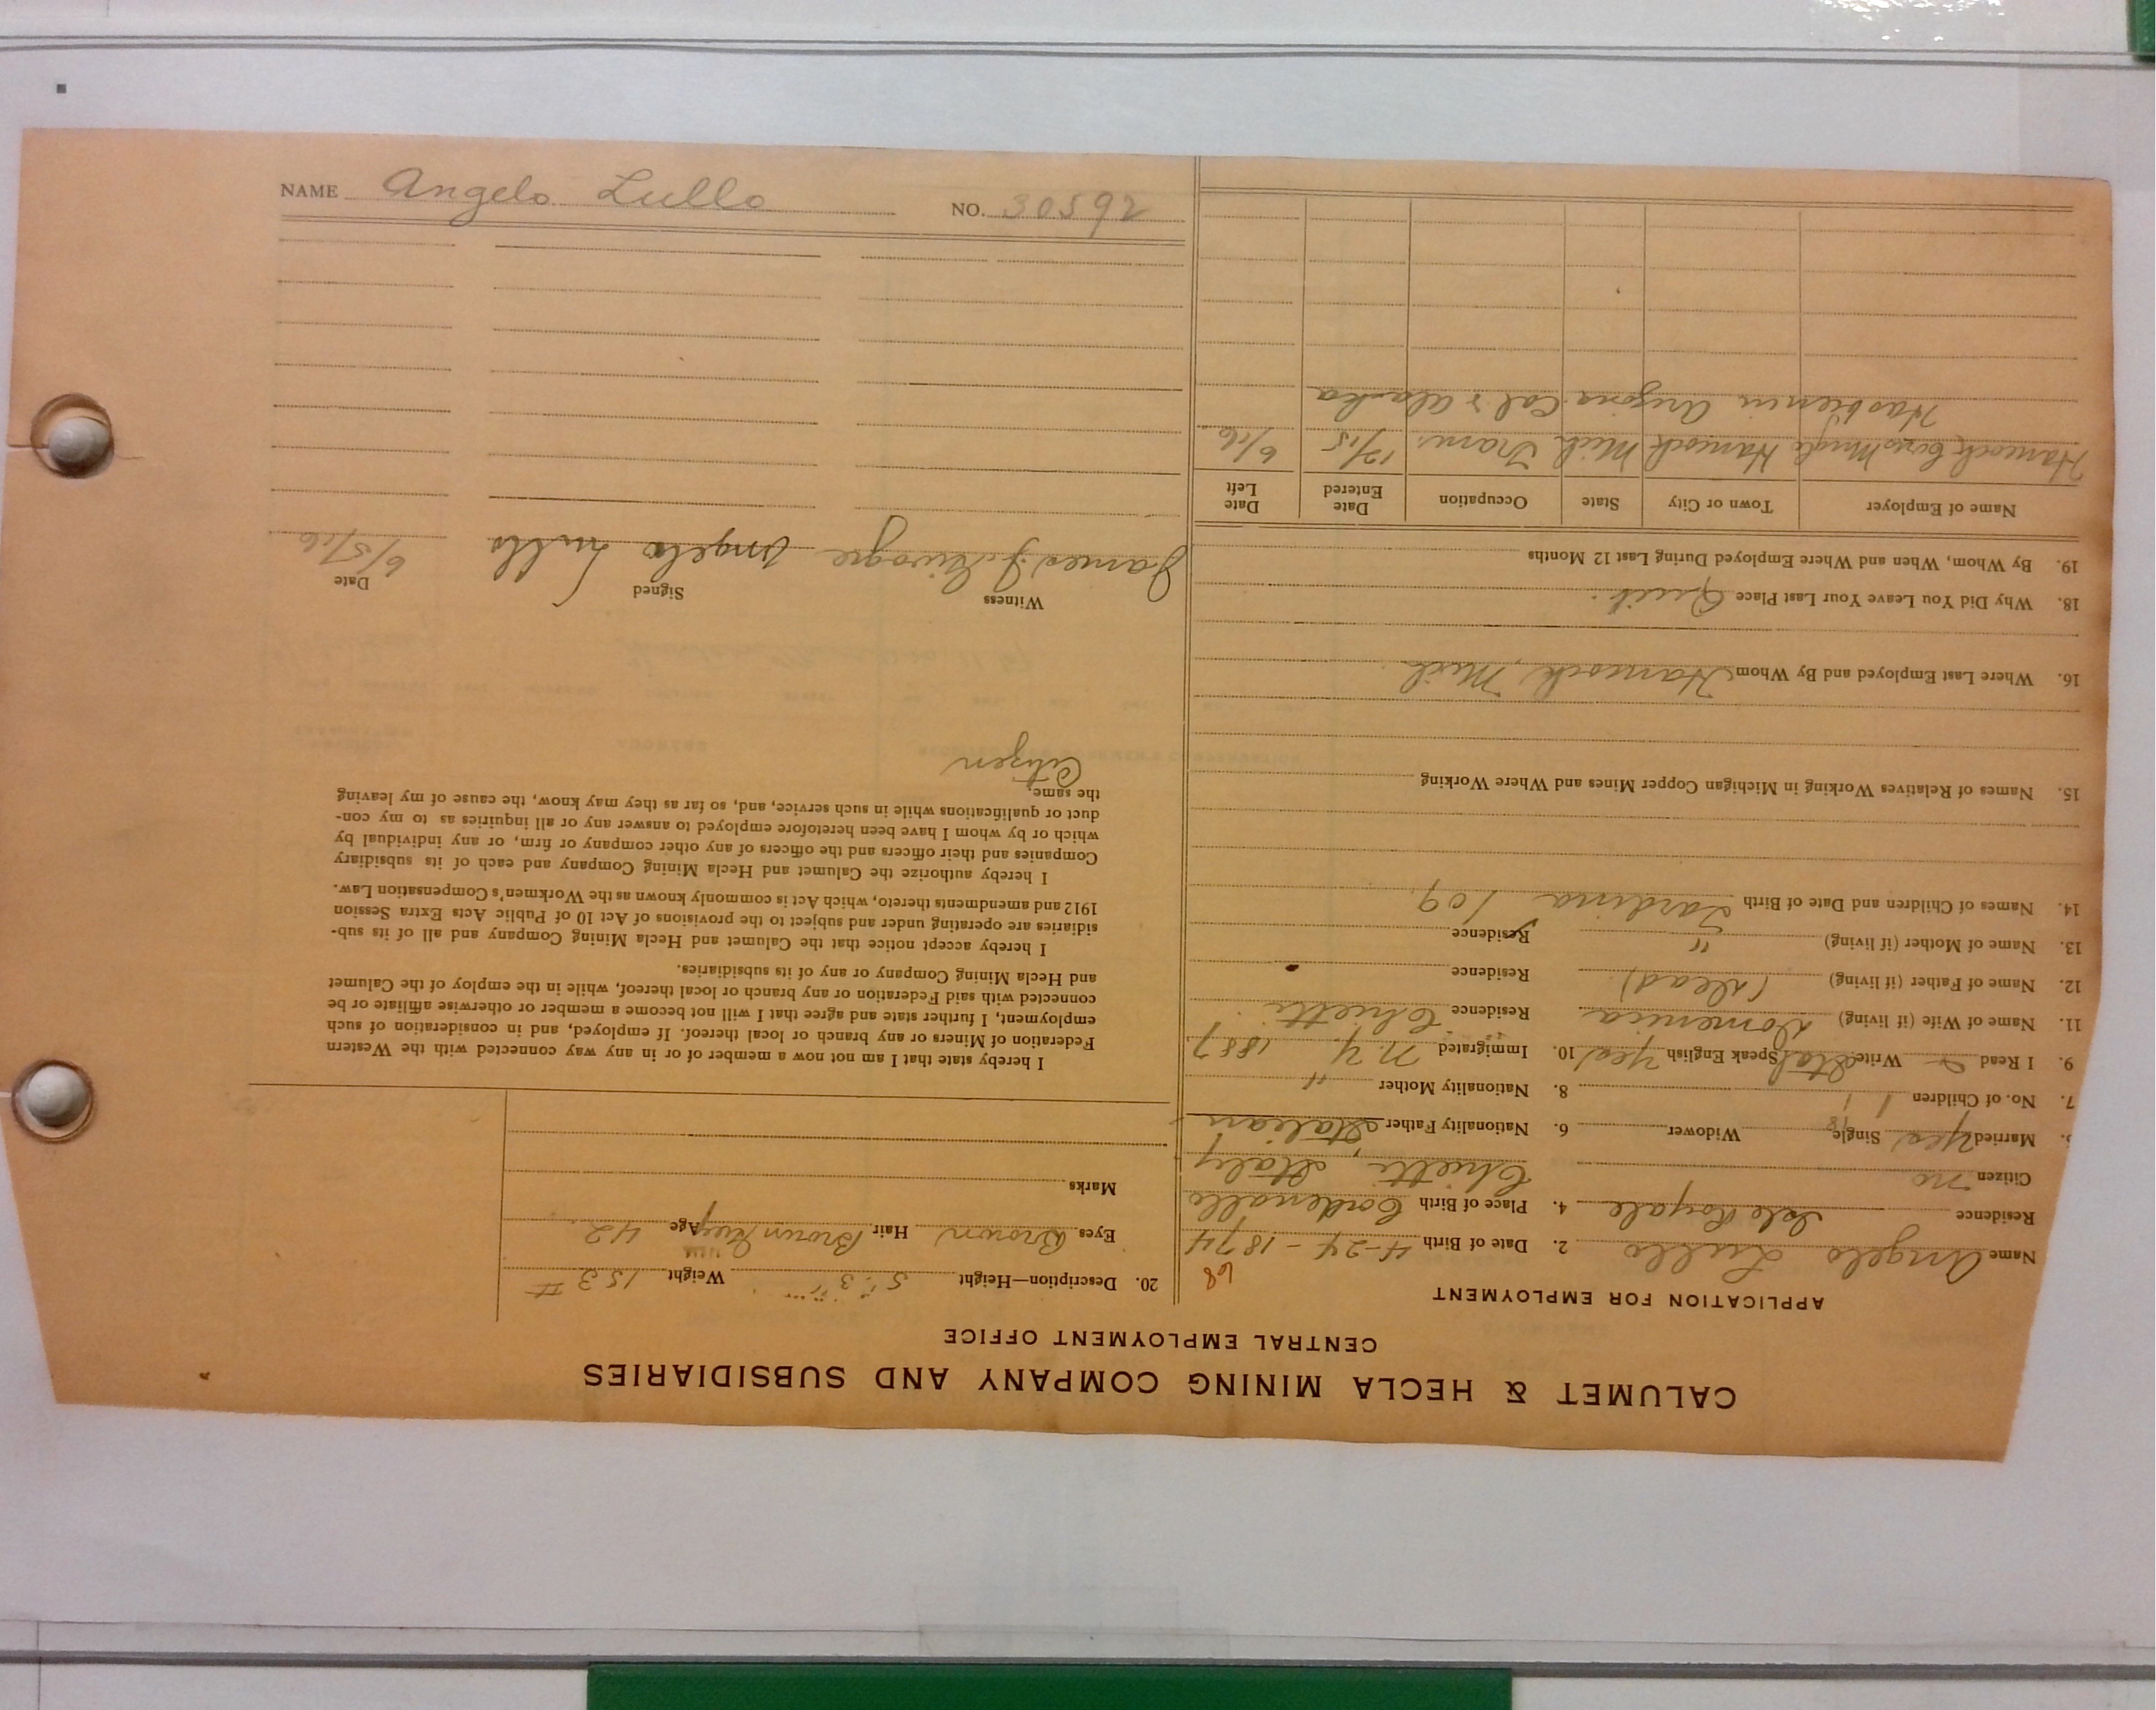 CALUMET & HECLA MINING COMPANY AND SUBSIDIARIES
CENTRAL EMPLOYMENT OFFICE
APPLICATION FOR EMPLOYMENT
68
Name Angelo Lullo 2. Date of Birth 4-24-1874
Residence Isle Royale 4. Place of Birth
Citizen no Chietti, Italy
Married Yes Single 98 Widower 6. Nationality Father Italian
7. No. of Children 1 8. Nationality Mother "
9. I Read Write Ital Speak English Yes 10. Immigrated N.Y. 1887
11. Name of Wife (if living) Domenica Residence Chietti
12. Name of Father (if living) (dead) Residence
13. Name of Mother (if living) " Residence
14. Names of Children and Date of Birth
15. Names of Relatives Working in Michigan Copper Mines and Where Working
16. Where Last Employed and By Whom Hancock, Mich.
18. Why Did You Leave Your Last Place Quit.
19. By Whom, When and Where Employed During Last 12 Months
Name of Employer Town or City State Occupation Date Entered Date Left
Hancock Cons Hancock Mich Tram. 12/15 6/16
Has been in Arizona Cal & Alaska
20. Description—Height 5' 3" Weight 153 #
Eyes Brown Hair Brown Age 42
Marks
I hereby state that I am not now a member of or in any way connected with the Western
Federation of Miners or any branch or local thereof. If employed, and in consideration of such
employment, I further state and agree that I will not become a member or otherwise affiliate or be
connected with said Federation or any branch or local thereof, while in the employ of the Calumet
and Hecla Mining Company or any of its subsidiaries.
I hereby accept notice that the Calumet and Hecla Mining Company and all of its sub-
sidiaries are operating under and subject to the provisions of Act 10 of Public Acts Extra Session
1912 and amendments thereto, which Act is commonly known as the Workmen's Compensation Law.
I hereby authorize the Calumet and Hecla Mining Company and each of its subsidiary
Companies and their officers and the officers of any other company or firm, or any individual by
which or by whom I have been heretofore employed to answer any or all inquiries as to my con-
duct or qualifications while in such service, and, so far as they may know, the cause of my leaving
the same.
Citizen
Witness Signed Date
James Angelo Lullo 6/5/16
NAME Angelo Lullo NO. 30592